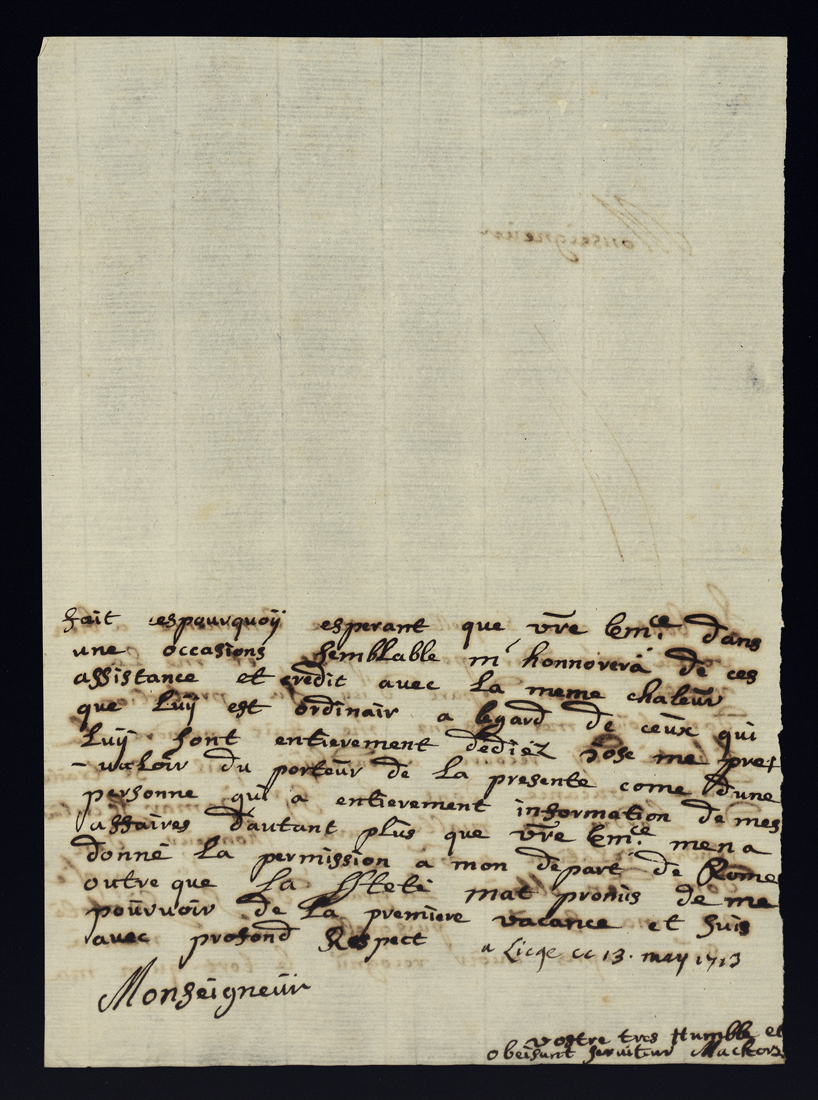 Monseigneur
fait cespourquoÿ esperant que vr̃e Em.ce dans
une occasions semblable m'honnorera de ces
assistance et credit avec la meme chaleur
que luÿ est ordinair a legard de ceux qui
luÿ sont entierement dediez Jose me pre:
-ualoir du porteur de la presente come d'une
personne qui a entierement information de mes
affaires d'autant plus que vr̃e Em.ce mena
donné la permission a mon depart de Rome
outre que la Steté mat promis de me
pourvoir de la premiere vacance et suis
avec profond Respect a Liege ce 13. may 1713
Monseigneur
vostre tres Humble et
obeisant serviteur